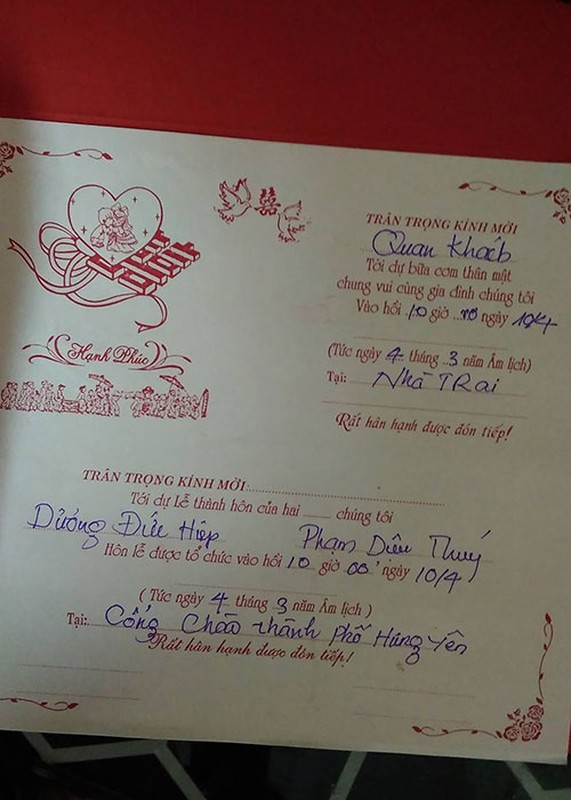 TRÂN TRỌNG KÍNH MỜI
Quan Khách
Tới dự bữa cơm thân mật
chung vui cùng gia đình chúng tôi
Vào hồi 10 giờ 00 ngày 10/4
(Tức ngày 4 tháng 3 năm Âm lịch)
Tại: Nhà TRai
Rất hân hạnh được đón tiếp!
Hạnh Phúc
TRÂN TRỌNG KÍNH MỜI
Tới dự Lễ thành hôn của hai chúng tôi
Dương Đức Hiệp Phạm Diệu Thuý
Hôn lễ được tổ chức vào hồi 10 giờ 00' ngày 10/4
(Tức ngày 4 tháng 3 năm Âm lịch)
Tại: Cổng Chào thành phố Hưng Yên
Rất hân hạnh được đón tiếp!